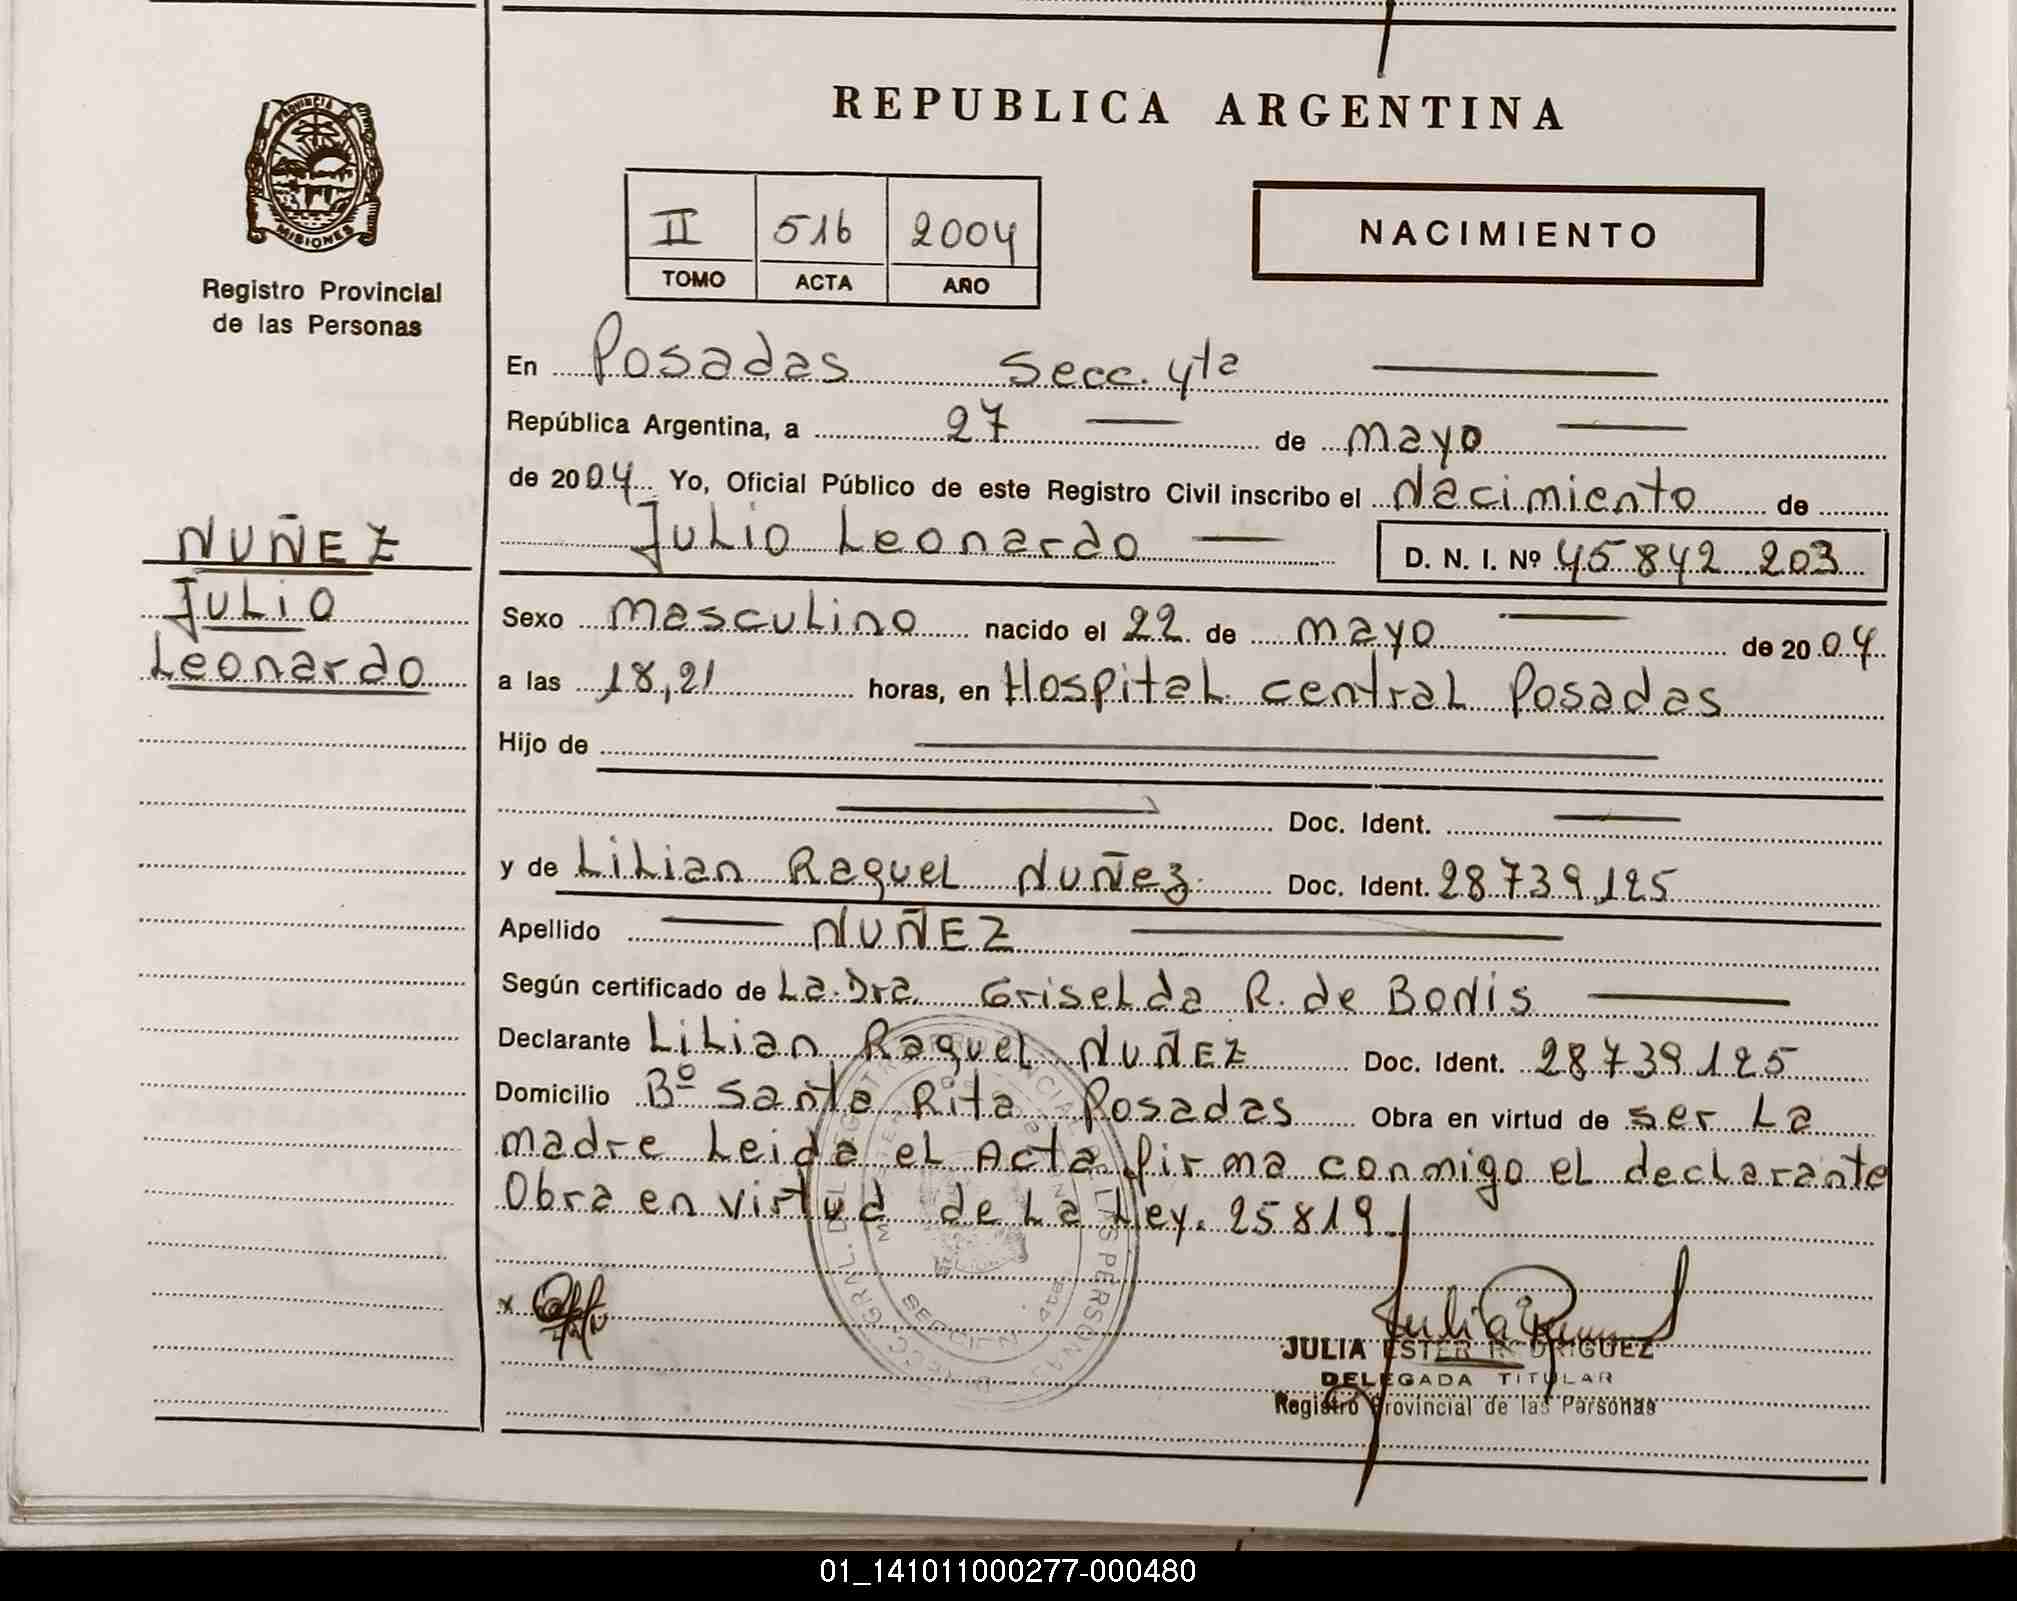 REPUBLICA ARGENTINA
PROVINCIA
MISIONES
Registro Provincial
de las Personas
II 516 2004
TOMO ACTA AÑO
NACIMIENTO
En Posadas Secc. 4ta
República Argentina, a 27 de mayo
de 2004 Yo, Oficial Público de este Registro Civil inscribo el Nacimiento de
Julio Leonardo D. N. I. Nº 45 842 203
NUÑEZ
Julio
Leonardo
Sexo masculino nacido el 22 de mayo de 2004
a las 18,21 horas, en Hospital central Posadas
Hijo de
Doc. Ident.
y de Lilian Raquel Nuñez Doc. Ident. 28739125
Apellido NUÑEZ
Según certificado de La Dra Griselda R. de Bonis
Declarante Lilian Raquel NUÑEZ Doc. Ident. 28739125
Domicilio Bº Santa Rita Posadas Obra en virtud de ser La
madre Leida el Acta firma conmigo el declarante
Obra en virtud de La Ley. 25819
JULIA ESTER RODRIGUEZ
DELEGADA TITULAR
Registro Provincial de las Personas
01_141011000277-000480